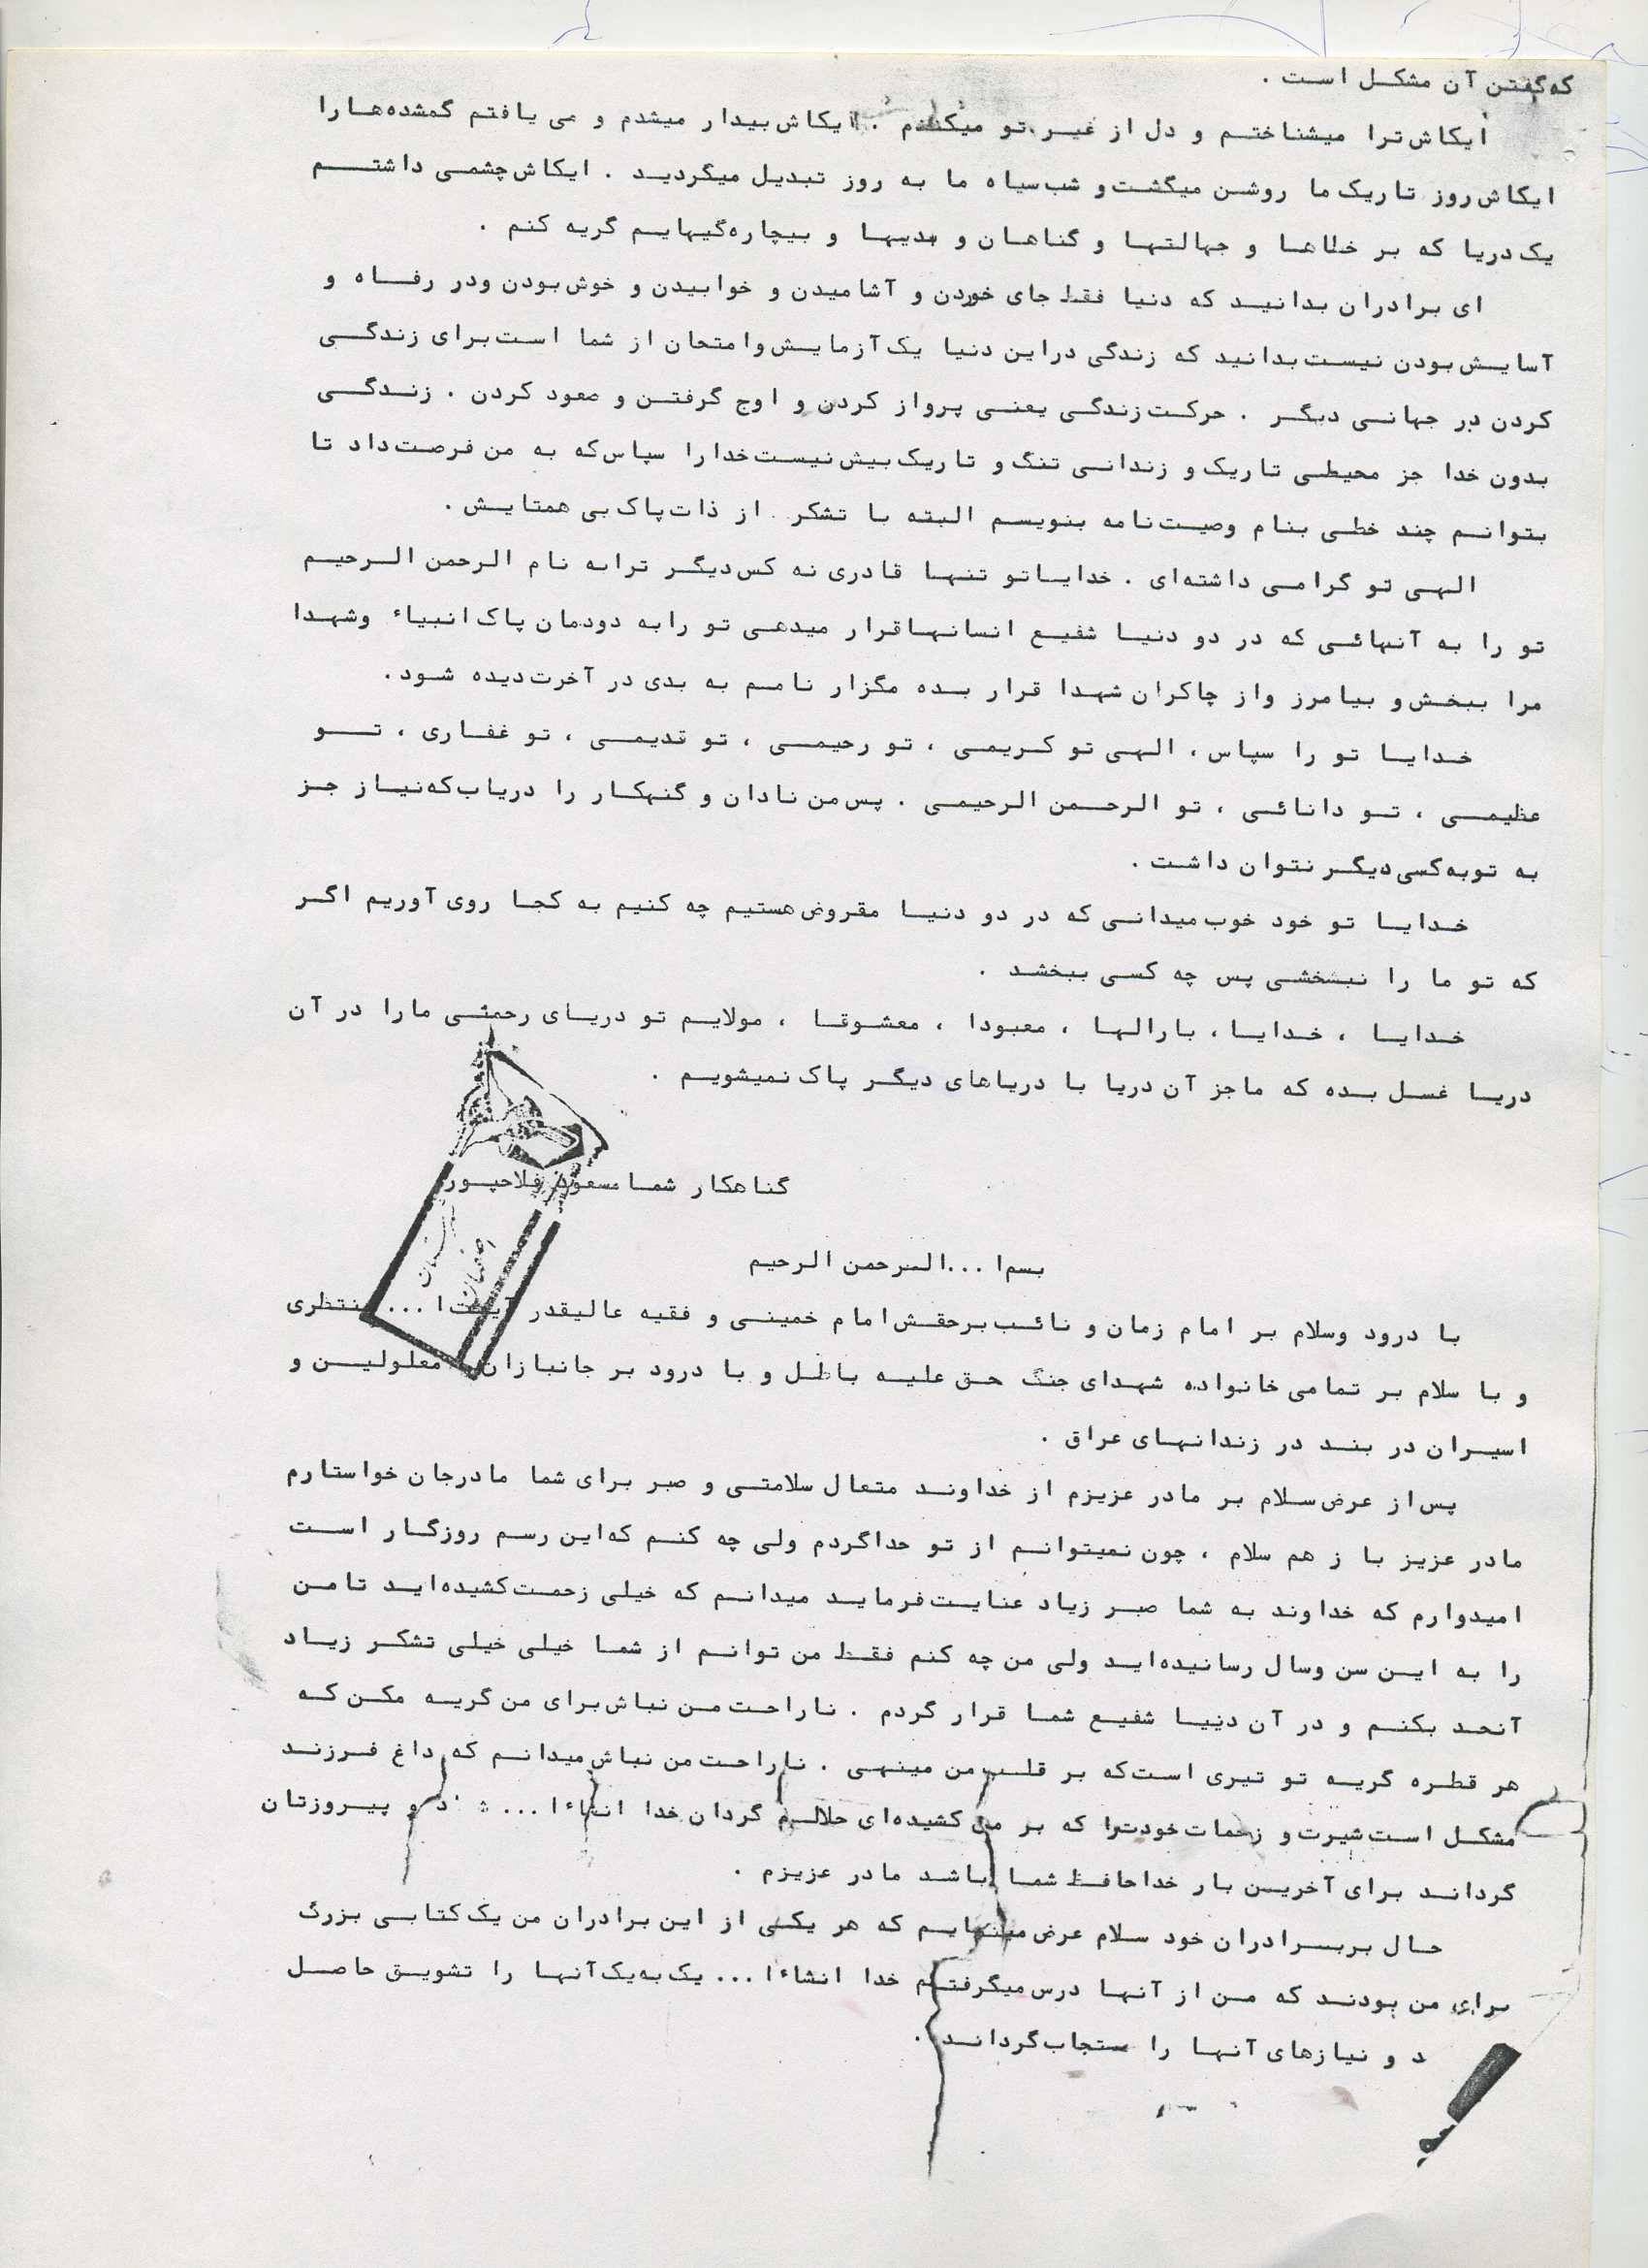 که گفتن آن مشکل است .
ایکاش ترا میشناختم و دل از غیر تو میکندم . ایکاش بیدار میشدم و می یافتم گمشده‌ها را
ایکاش روز تاریک ما روشن میگشت و شب سیاه ما به روز تبدیل میگردید . ایکاش چشمی داشتم
یک دریا که بر خطاها و جهالتها و گناهان و بدیها و بیچاره‌گیهایم گریه کنم .
ای برادران بدانید که دنیا فقط جای خوردن و آشامیدن و خوابیدن و خوش بودن ودر رفاه و
آسایش بودن نیست بدانید که زندگی دراین دنیا یک آزمایش وامتحان از شما است برای زندگی
کردن در جهانی دیگر . حرکت زندگی یعنی پرواز کردن و اوج گرفتن و صعود کردن . زندگی
بدون خدا جز محیطی تاریک و زندانی تنگ و تاریک بیش نیست خدا را سپاس که به من فرصت داد تا
بتوانم چند خطی بنام وصیت‌نامه بنویسم البته با تشکر از ذات پاک بی همتایش .
الهی تو گرامی داشته‌ای . خدایا تو تنها قادری نه کس دیگر ترا به نام الرحمن الرحیم
تو را به آنهائی که در دو دنیا شفیع انسانها قرار میدهی تو را به دودمان پاک انبیاء وشهدا
مرا ببخش و بیامرز واز چاکران شهدا قرار بده مگزار نامم به بدی در آخرت دیده شود .
خدایا تو را سپاس ، الهی تو کریمی ، تو رحیمی ، تو قدیمی ، تو غفاری ، تو
عظیمی ، تو دانائی ، تو الرحمن الرحیمی . پس من نادان و گنهکار را دریاب که نیاز جز
به توبه کسی دیگر نتوان داشت .
خدایا تو خود خوب میدانی که در دو دنیا مقروض هستیم چه کنیم به کجا روی آوریم اگر
که تو ما را نبخشی پس چه کسی ببخشد .
خدایا ، خدایا ، بارالها ، معبودا ، معشوقا ، مولایم تو دریای رحمتی مارا در آن
دریا غسل بده که ماجز آن دریا با دریاهای دیگر پاک نمیشویم .
گناهکار شما مسعود فلاحپور
بسم‌ا ...الرحمن الرحیم
با درود وسلام بر امام زمان و نائب برحقش امام خمینی و فقیه عالیقدر آیت‌ا ... منتظری
و با سلام بر تمامی خانواده شهدای جنگ حق علیه باطل و با درود بر جانبازان معلولین و
اسیران در بند در زندانهای عراق .
پس از عرض سلام بر مادر عزیزم از خداوند متعال سلامتی و صبر برای شما مادرجان خواستارم
مادر عزیز با ز هم سلام ، چون نمیتوانم از تو جداگردم ولی چه کنم که این رسم روزگار است
امیدوارم که خداوند به شما صبر زیاد عنایت فرماید میدانم که خیلی زحمت کشیده‌اید تا من
را به این سن وسال رسانیده‌اید ولی من چه کنم فقط من توانم از شما خیلی خیلی تشکر زیاد
آنحد بکنم و در آن دنیا شفیع شما قرار گردم . ناراحت من نباش برای من گریه مکن که
هر قطره گریه تو تیری است که بر قلب من مینهی . ناراحت من نباش میدانم که داغ فرزند
مشکل است شیرت و زحمات خودت را که بر من کشیده‌ای حلالم گردان خدا انشاءا ... و پیروزتان
گرداند برای آخرین بار خداحافظ شما باشد مادر عزیزم .
حال بر برادران خود سلام عرض مینمایم که هر یکی از این برادران من یک کتابی بزرگ
برای من بودند که من از آنها درس میگرفتم خدا انشاءا ... یک به یک آنها را تشویق حاصل
د و نیازهای آنها را ستجاب گرداند .